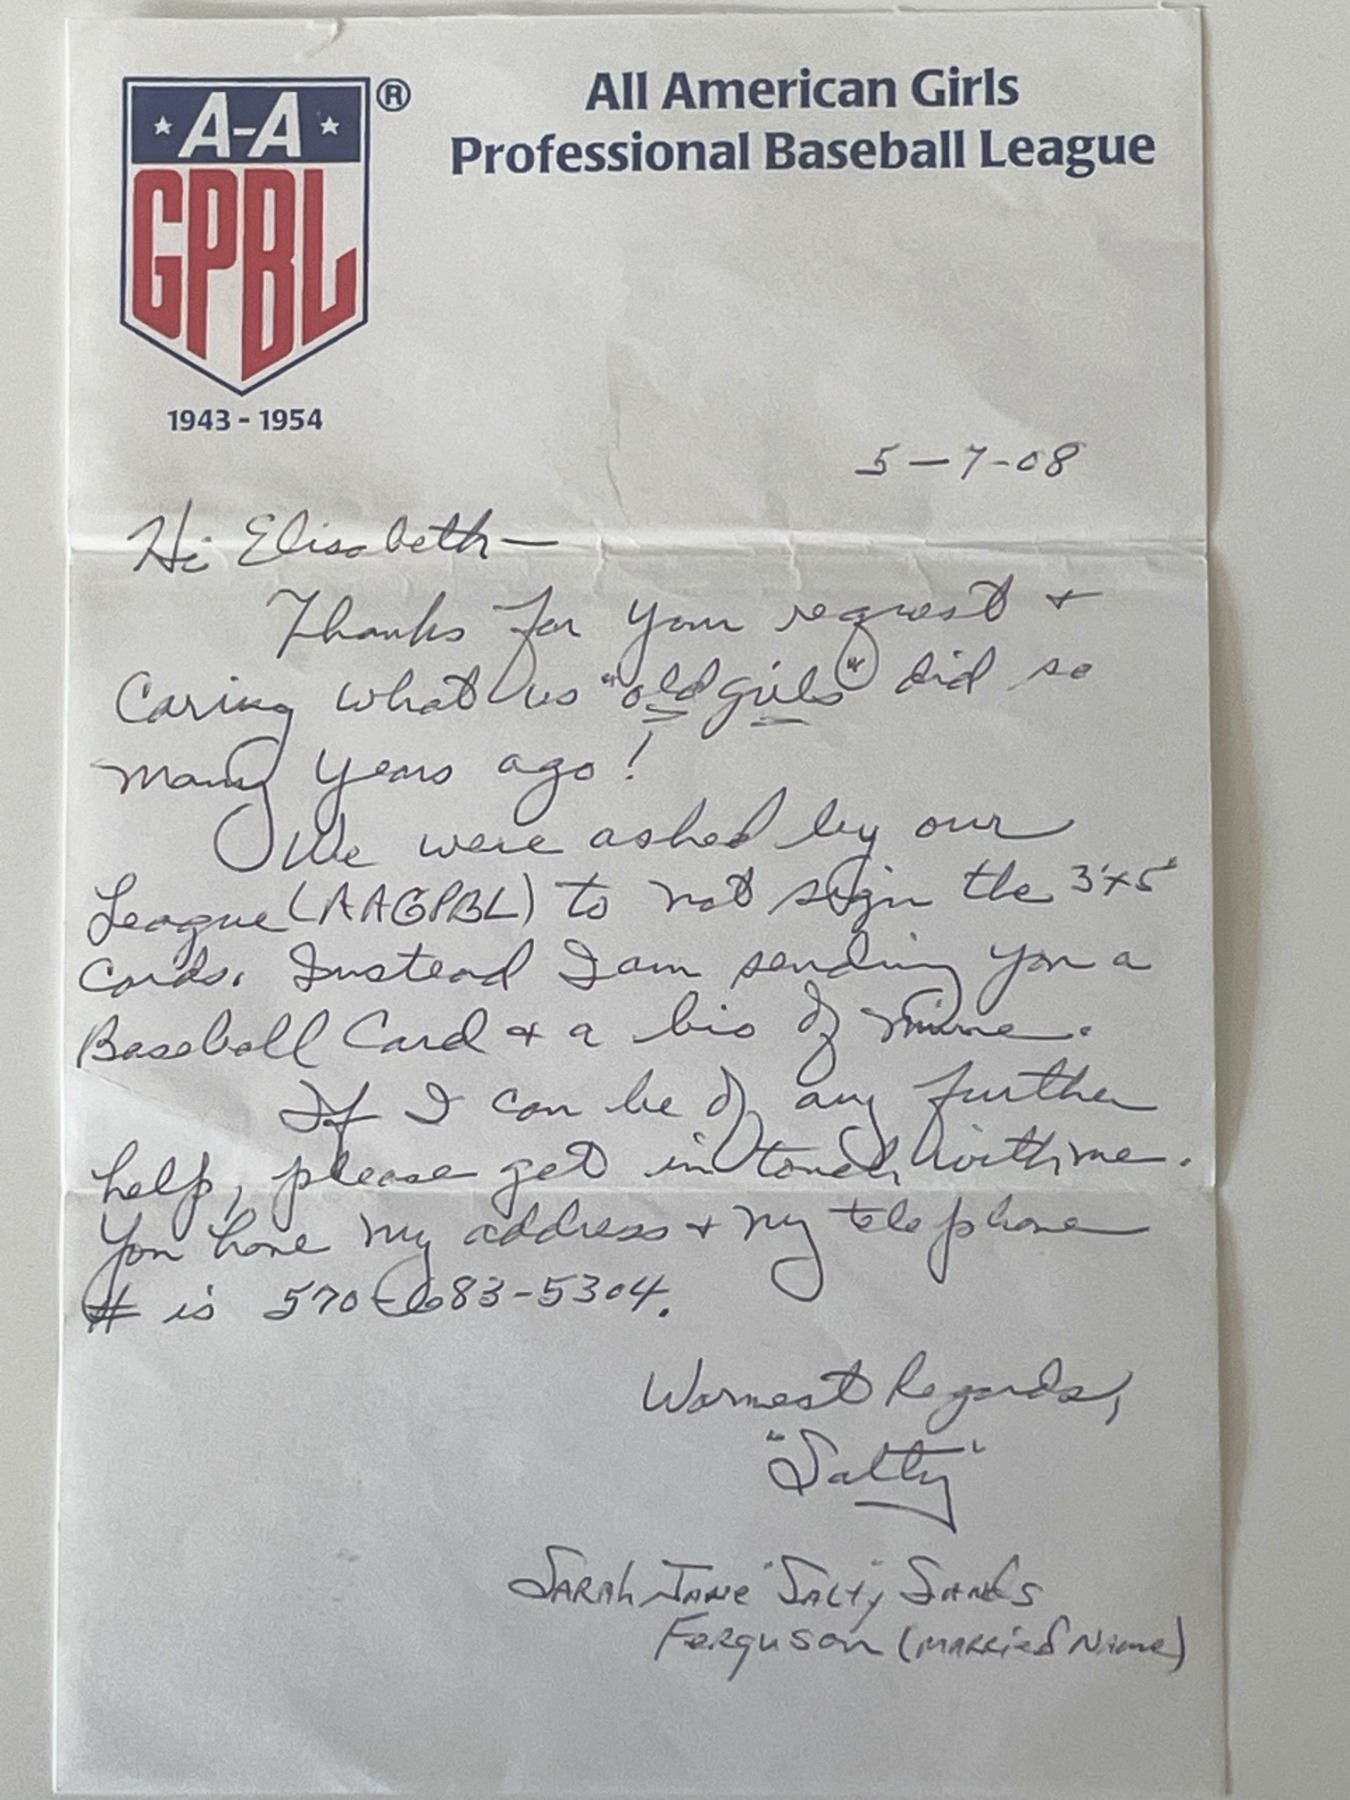 A-A
GPBL
®
1943 - 1954
All American Girls
Professional Baseball League
5-7-08
Hi Elisabeth -
Thanks for your request +
Caring what us "old girls" did so
many years ago!
We were asked by our
League (AAGPBL) to not sign the 3"x5"
cards. Instead I am sending you a
Baseball Card + a bio of mine.
If I can be of any further
help, please get in touch with me.
You have my address + my telephone
# is 570-683-5304.
Warmest Regards,
"Salty"
Sarah Jane "Salty" Sands
Ferguson (Married Name)